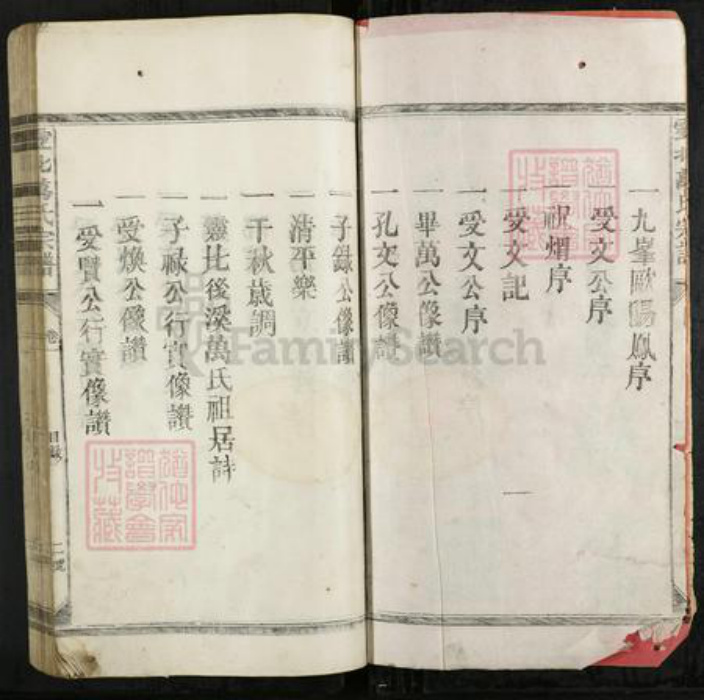 一九峯歐陽鳳序
一受文公序
一祝烟序
一受文記
一受文公序
一畢萬公像讚
一孔文公像讚
一子錄公像讚
一清平樂
一千秋歲調
一靈比後溪萬氏祖居詩
一子祿公行實像讚
一受煥公像讚
一受賢公行實像讚
萬氏宗譜
目錄
FamilySearch